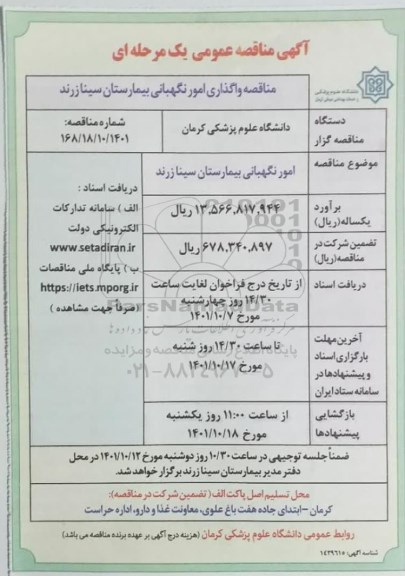 آگهی مناقصه عمومی یک مرحله ای
مناقصه واگذاری امور نگهبانی بیمارستان سینا زرند
دانشگاه علوم پزشکی
دستگاه مناقصه گزار
دانشگاه علوم پزشکی کرمان
شماره مناقصه:
۱۶۸/۱۸/۱۰/۱۴۰۱
موضوع مناقصه
امور نگهبانی بیمارستان سینا زرند
برآورد
یکساله(ریال)
۱۳,۵۶۶,۸۱۷,۹۴۴ ریال
تضمین شرکت در
مناقصه(ریال)
۶۷۸,۳۴۰,۸۹۷ ریال
دریافت اسناد
از تاریخ درج فراخوان لغایت ساعت
۱۴/۳۰ روز چهارشنبه
مورخ ۱۴۰۱/۱۰/۷
آخرین مهلت
بارگزاری اسناد
و پیشنهادها در
سامانه ستاد ایران
تا ساعت ۱۴/۳۰ روز شنبه
مورخ ۱۴۰۱/۱۰/۱۷
بازگشایی
پیشنهادها
از ساعت ۱۱:۰۰ روز یکشنبه
مورخ ۱۴۰۱/۱۰/۱۸
دریافت اسناد :
الف ) سامانه تدارکات
الکترونیکی دولت
www.setadiran.ir
ب ) پایگاه ملی مناقصات
https://iets.mporg.ir
(صرفا جهت مشاهده )
ParsNamadData
پایگاه اطلاع رسانی مناقصه و مزایده
۰۲۱-۸۸۳۴۹۶۷۰-۵
ضمناً جلسه توجیهی در ساعت ۱۰/۳۰ روز دوشنبه مورخ ۱۴۰۱/۱۰/۱۲ در محل
دفتر مدیر بیمارستان سینا زرند برگزار خواهد شد.
محل تسلیم اصل پاکت الف ( تضمین شرکت در مناقصه):
کرمان – ابتدای جاده هفت باغ علوی، معاونت غذا و دارو، اداره حراست
روابط عمومی دانشگاه علوم پزشکی کرمان (هزینه درج آگهی بر عهده برنده مناقصه می باشد)
شناسه آگهی: ۱۴۲۹۶۱۵